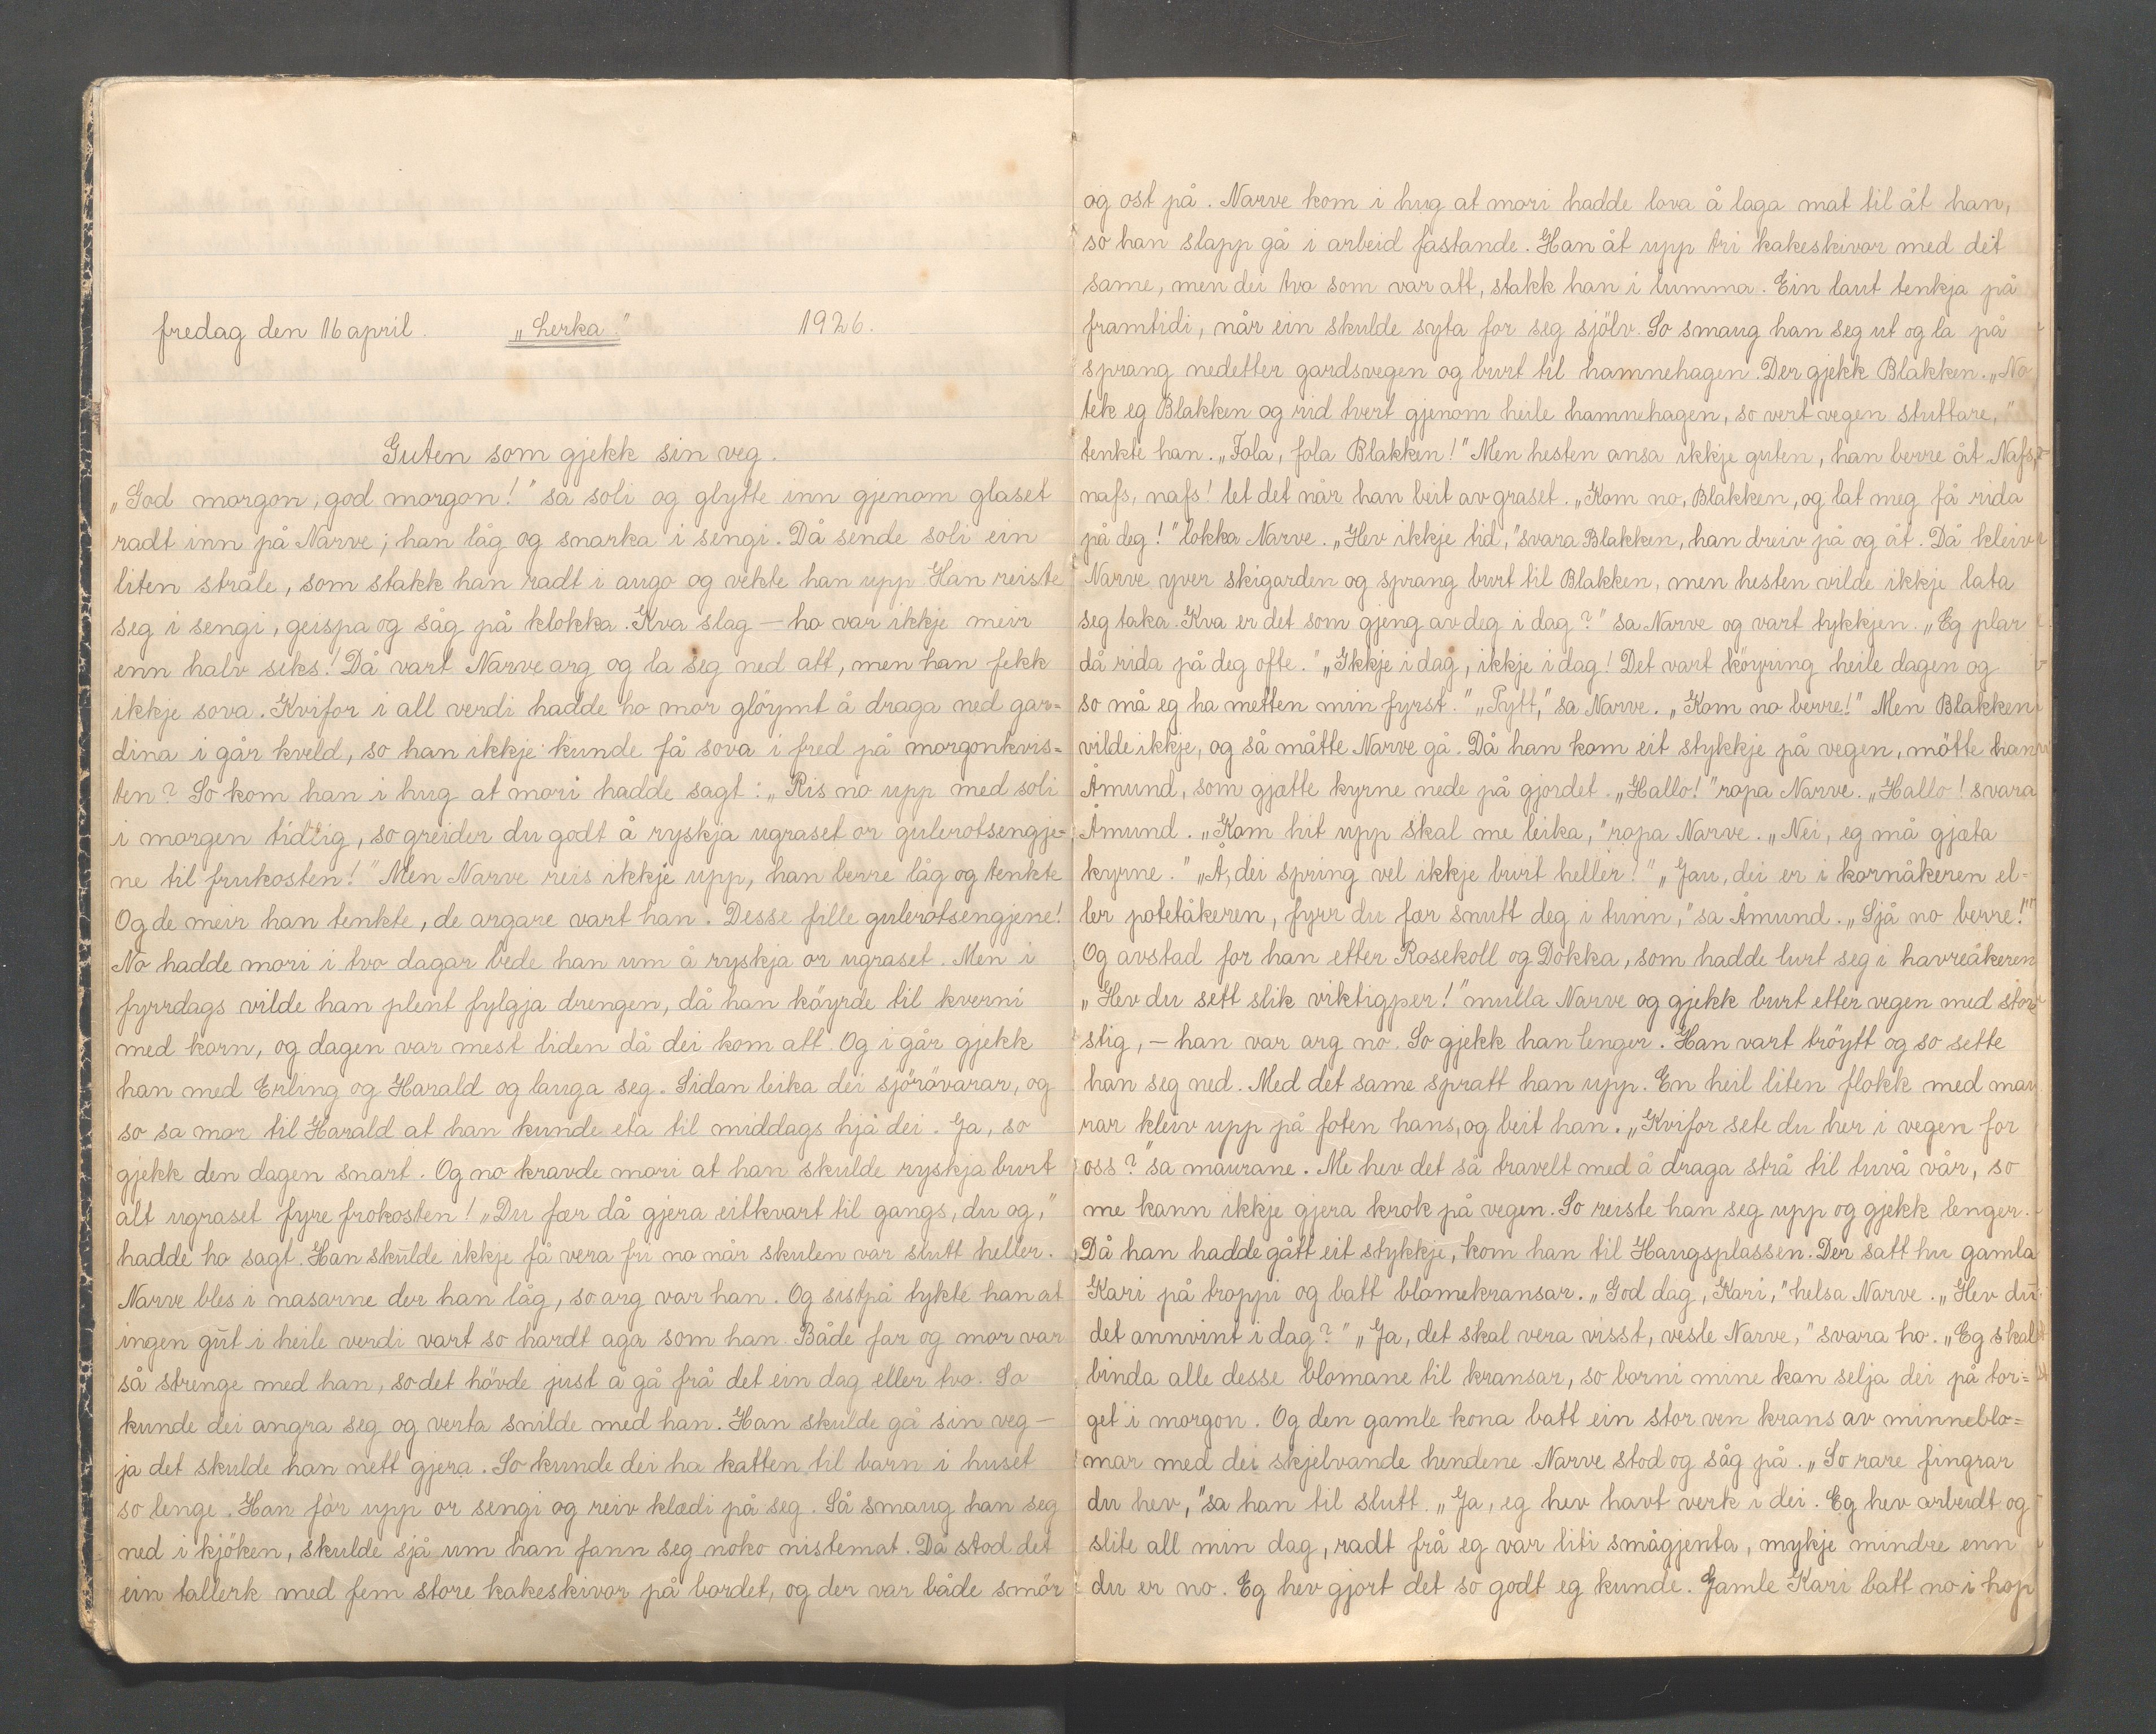 fredag den 16 april. „Lerka" 1926.
Guten som gjekk sin veg.
„God morgon, god morgon!" sa soli og glytte inn gjenom glaset
radt inn på Narve; han låg og snarka i sengi. Då sende soli ein
liten stråle, som stakk han radt i augo og vekte han upp. Han reiste
seg i sengi, geispa og såg på klokka. Kva slag — ho var ikkje meir
enn halv seks! Då vart Narve arg og la seg ned att, men han fekk
ikkje sova. Kvifor i all verdi hadde ho mor glöymt å draga ned gar=
dina i går kveld, so han ikkje kunde få sova i fred på morgonkvis=
ten? So kom han i hug at mori hadde sagt: „Ris no upp med soli
i morgen tidlig, so greider du godt å ryskja ugraset or gulerotsengje=
ne til frukosten!" Men Narve reis ikkje upp, han berre låg og tenkte
Og de meir han tenkte, de argare vart han. Desse fille gulerotsengjene!
No hadde mori i tvo dagar bede han um å ryskja or ugraset. Men i
fyrrdags vilde han plent fylgja drengen, då han köyrde til kverni
med korn, og dagen var mest liden då dei kom att. Og i går gjekk
han med Erling og Harald og lauga seg. Sidan leika dei sjörövarar, og
so sa mor til Harald at han kunde eta til middags hjå dei. Ja, so
gjekk den dagen snart. Og no kravde mori at han skulde ryskja burt
alt ugraset fyre frokosten! „Du fær då gjera eitkvart til gangs, du og,"
hadde ho sagt. Han skulde ikkje få vera fri no når skulen var slutt heller.
Narve bles i nasarne der han låg, so arg var han. Og sistpå tykte han at
ingen gut i heile verdi vart so hardt aga som han. Både far og mor var
så strenge med han, so det hövde just å gå frå det ein dag eller tvo. So
kunde dei angra seg og verta snilde med han. Han skulde gå sin veg —
ja det skulde han nett gjera. So kunde dei ha katten til barn i huset
so lenge. Han fòr upp or sengi og reiv klædi på seg. Så smaug han seg
ned i kjöken, skulde sjå um han fann seg noko nistemat. Då stod det
ein tallerk med fem store kakeskivor på bordet, og der var både smör
og ost på. Narve kom i hug at mori hadde lova å laga mat til åt han,
so han slapp gå i arbeid fastande. Han åt upp tri kakeskivor med det
same, men dei tvo som var att, stakk han i lumma. Ein laut tenkja på
framtidi, når ein skulde syta for seg sjölv. So smaug han seg ut og la på
sprang nedetter gardsvegen og burt til hamnehagen. Der gjekk Blakken. „No
tek eg Blakken og rid tvert gjenom heile hamnehagen, so vert vegen stuttare,"
tenkte han. „Fola, fola Blakken!" Men hesten ansa ikkje guten, han berre åt. Nafs,
nafs, nafs! let det når han beit av graset. „Kom no, Blakken, og lat meg få rida
på deg!" lokka Narve. „Hev ikkje tid," svara Blakken, han dreiv på og åt. Då kleiv
Narve yver skigarden og sprang burt til Blakken, men hesten vilde ikkje lata
seg taka. Kva er det som gjeng av deg i dag?" sa Narve og vart tykkjen. „Eg plar
då rida på deg ofte." „Ikkje i dag, ikkje i dag! Det vart köyring heile dagen og
so må eg ha metten min fyrst." „Pytt," sa Narve. „Kom no berre!" Men Blakken
vilde ikkje, og så måtte Narve gå. Då han kom eit stykkje på vegen, mötte han
Åmund, som gjætte kyrne nede på gjordet. „Hallo!" ropa Narve. „Hallo! svara
Åmund. „Kom hit upp skal me leika," ropa Narve. „Nei, eg må gjæta
kyrne." „Å, dei spring vel ikkje burt heller!" „Jau, dei er i kornåkeren el=
ler potetåkeren, fyrr du fær snutt deg i tunn," sa Åmund. „Sjå no berre!"
Og avstad for han etter Rosekoll og Dokka, som hadde lurt seg i havreåkeren
„Hev du sett slik viktigper!" mulla Narve og gjekk burt etter vegen med store
stig, — han var arg no. So gjekk han lenger. Han vart tröytt og so sette
han seg ned. Med det same spratt han upp. En heil liten flokk med mau
rar kleiv upp på foten hans, og beit han. „Kvifor sete du her i vegen for
oss?" sa maurane. Me hev det så travelt med å draga strå til tuvå vår, so
me kann ikkje gjera krok på vegen. So reiste han seg upp og gjekk lenger.
Då han hadde gått eit stykkje, kom han til Haugsplassen. Der satt hu gamla
Kari på troppi og batt blomekransar. „God dag, Kari," helsa Narve. „Hev du
det annvint i dag?" „Ja, det skal vera visst, vesle Narve," svara ho. „Eg skal
binda alle desse blomane til kransar, so borni mine kan selja dei på tor=
get i morgon. Og den gamle kona batt ein stor ven krans av minneblo=
mar med dei skjelvande hendene. Narve stod og såg på. „So rare fingrar
du hev," sa han til slutt. „Ja, eg hev havt verk i dei. Eg hev arbeidt og
slite all min dag, radt frå eg var liti smågjenta, mykje mindre enn
du er no. Eg hev gjort det so godt eg kunde. Gamle Kari batt no i hop